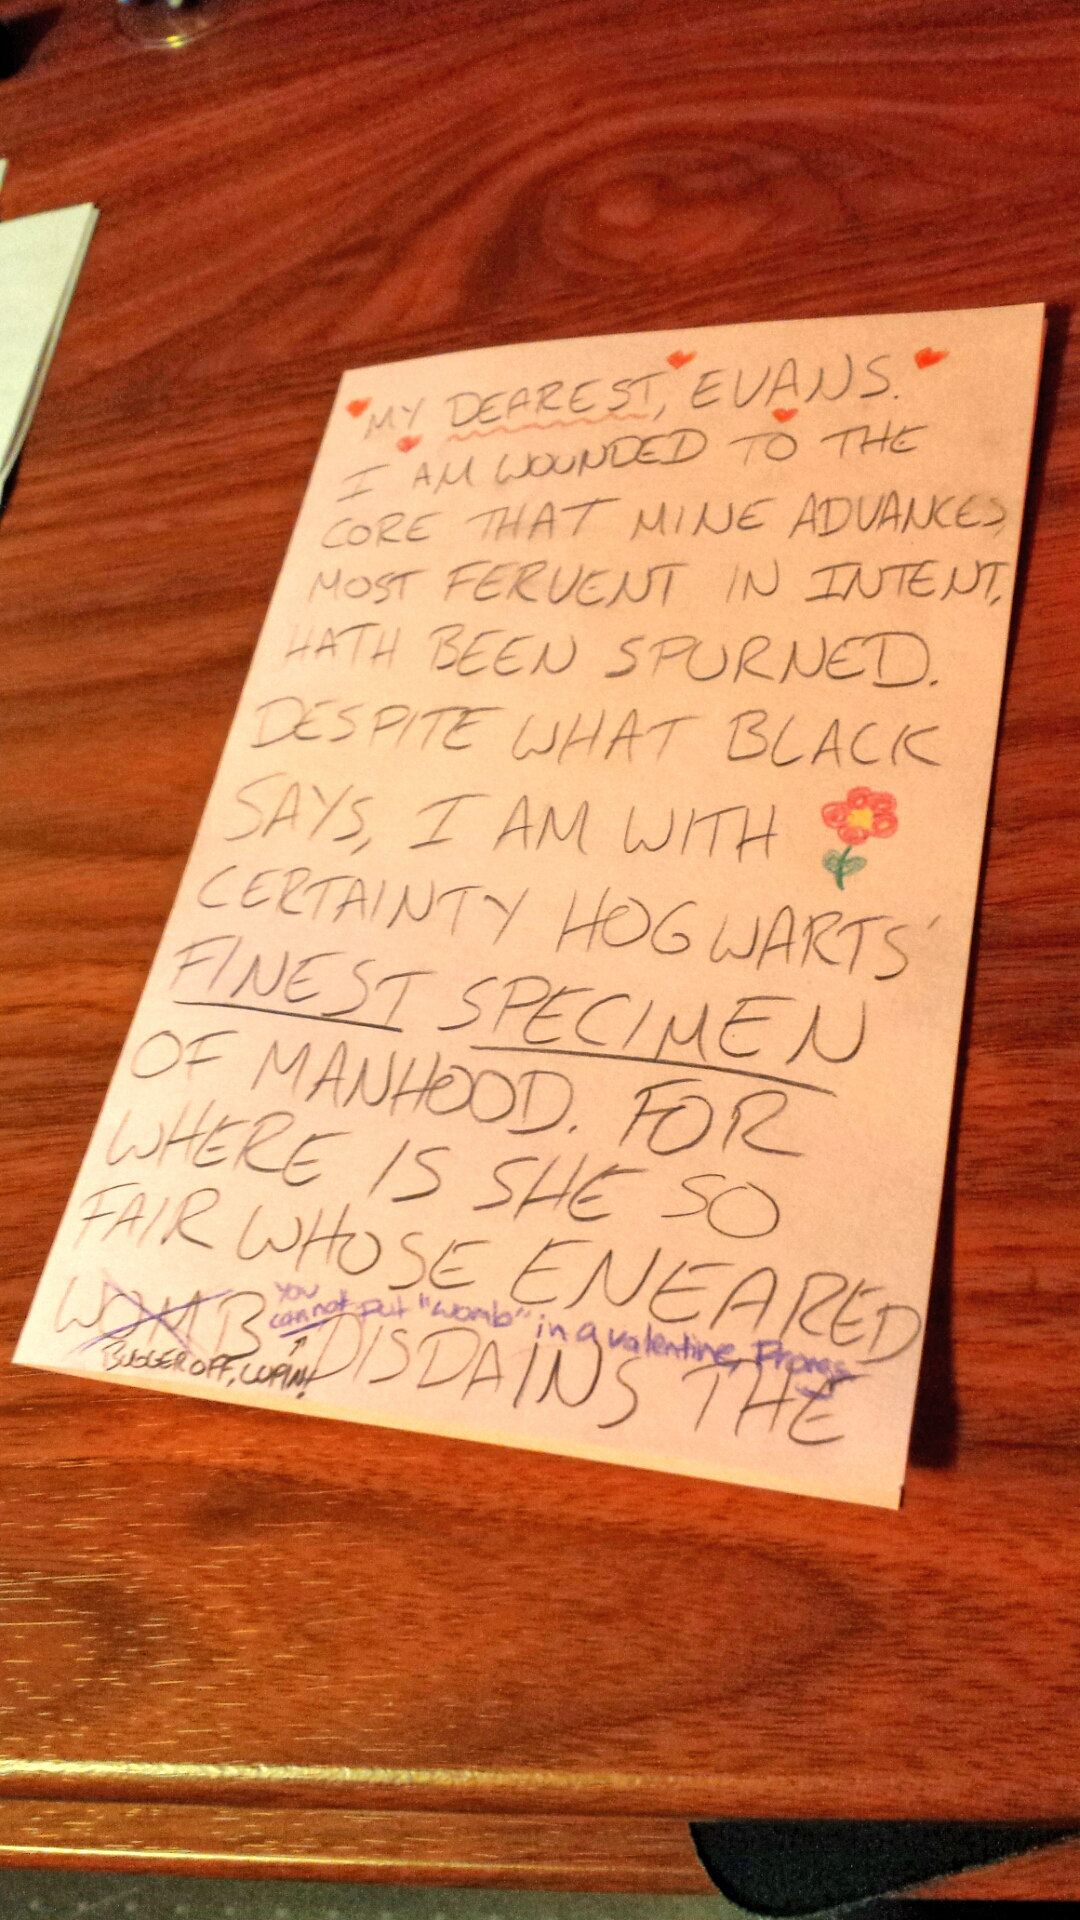 MY DEAREST, EVANS.
I AM WOUNDED TO THE
CORE THAT MINE ADVANCES,
MOST FERVENT IN INTENT,
HATH BEEN SPURNED.
DESPITE WHAT BLACK
SAYS, I AM WITH
CERTAINTY HOGWARTS'
FINEST SPECIMEN
OF MANHOOD. FOR
WHERE IS SHE SO
FAIR WHOSE ENEARED
WOMB DISDAINS THE
You
cannot put "womb" in a valentine, Prongs
BUGGER OFF, LUPIN!